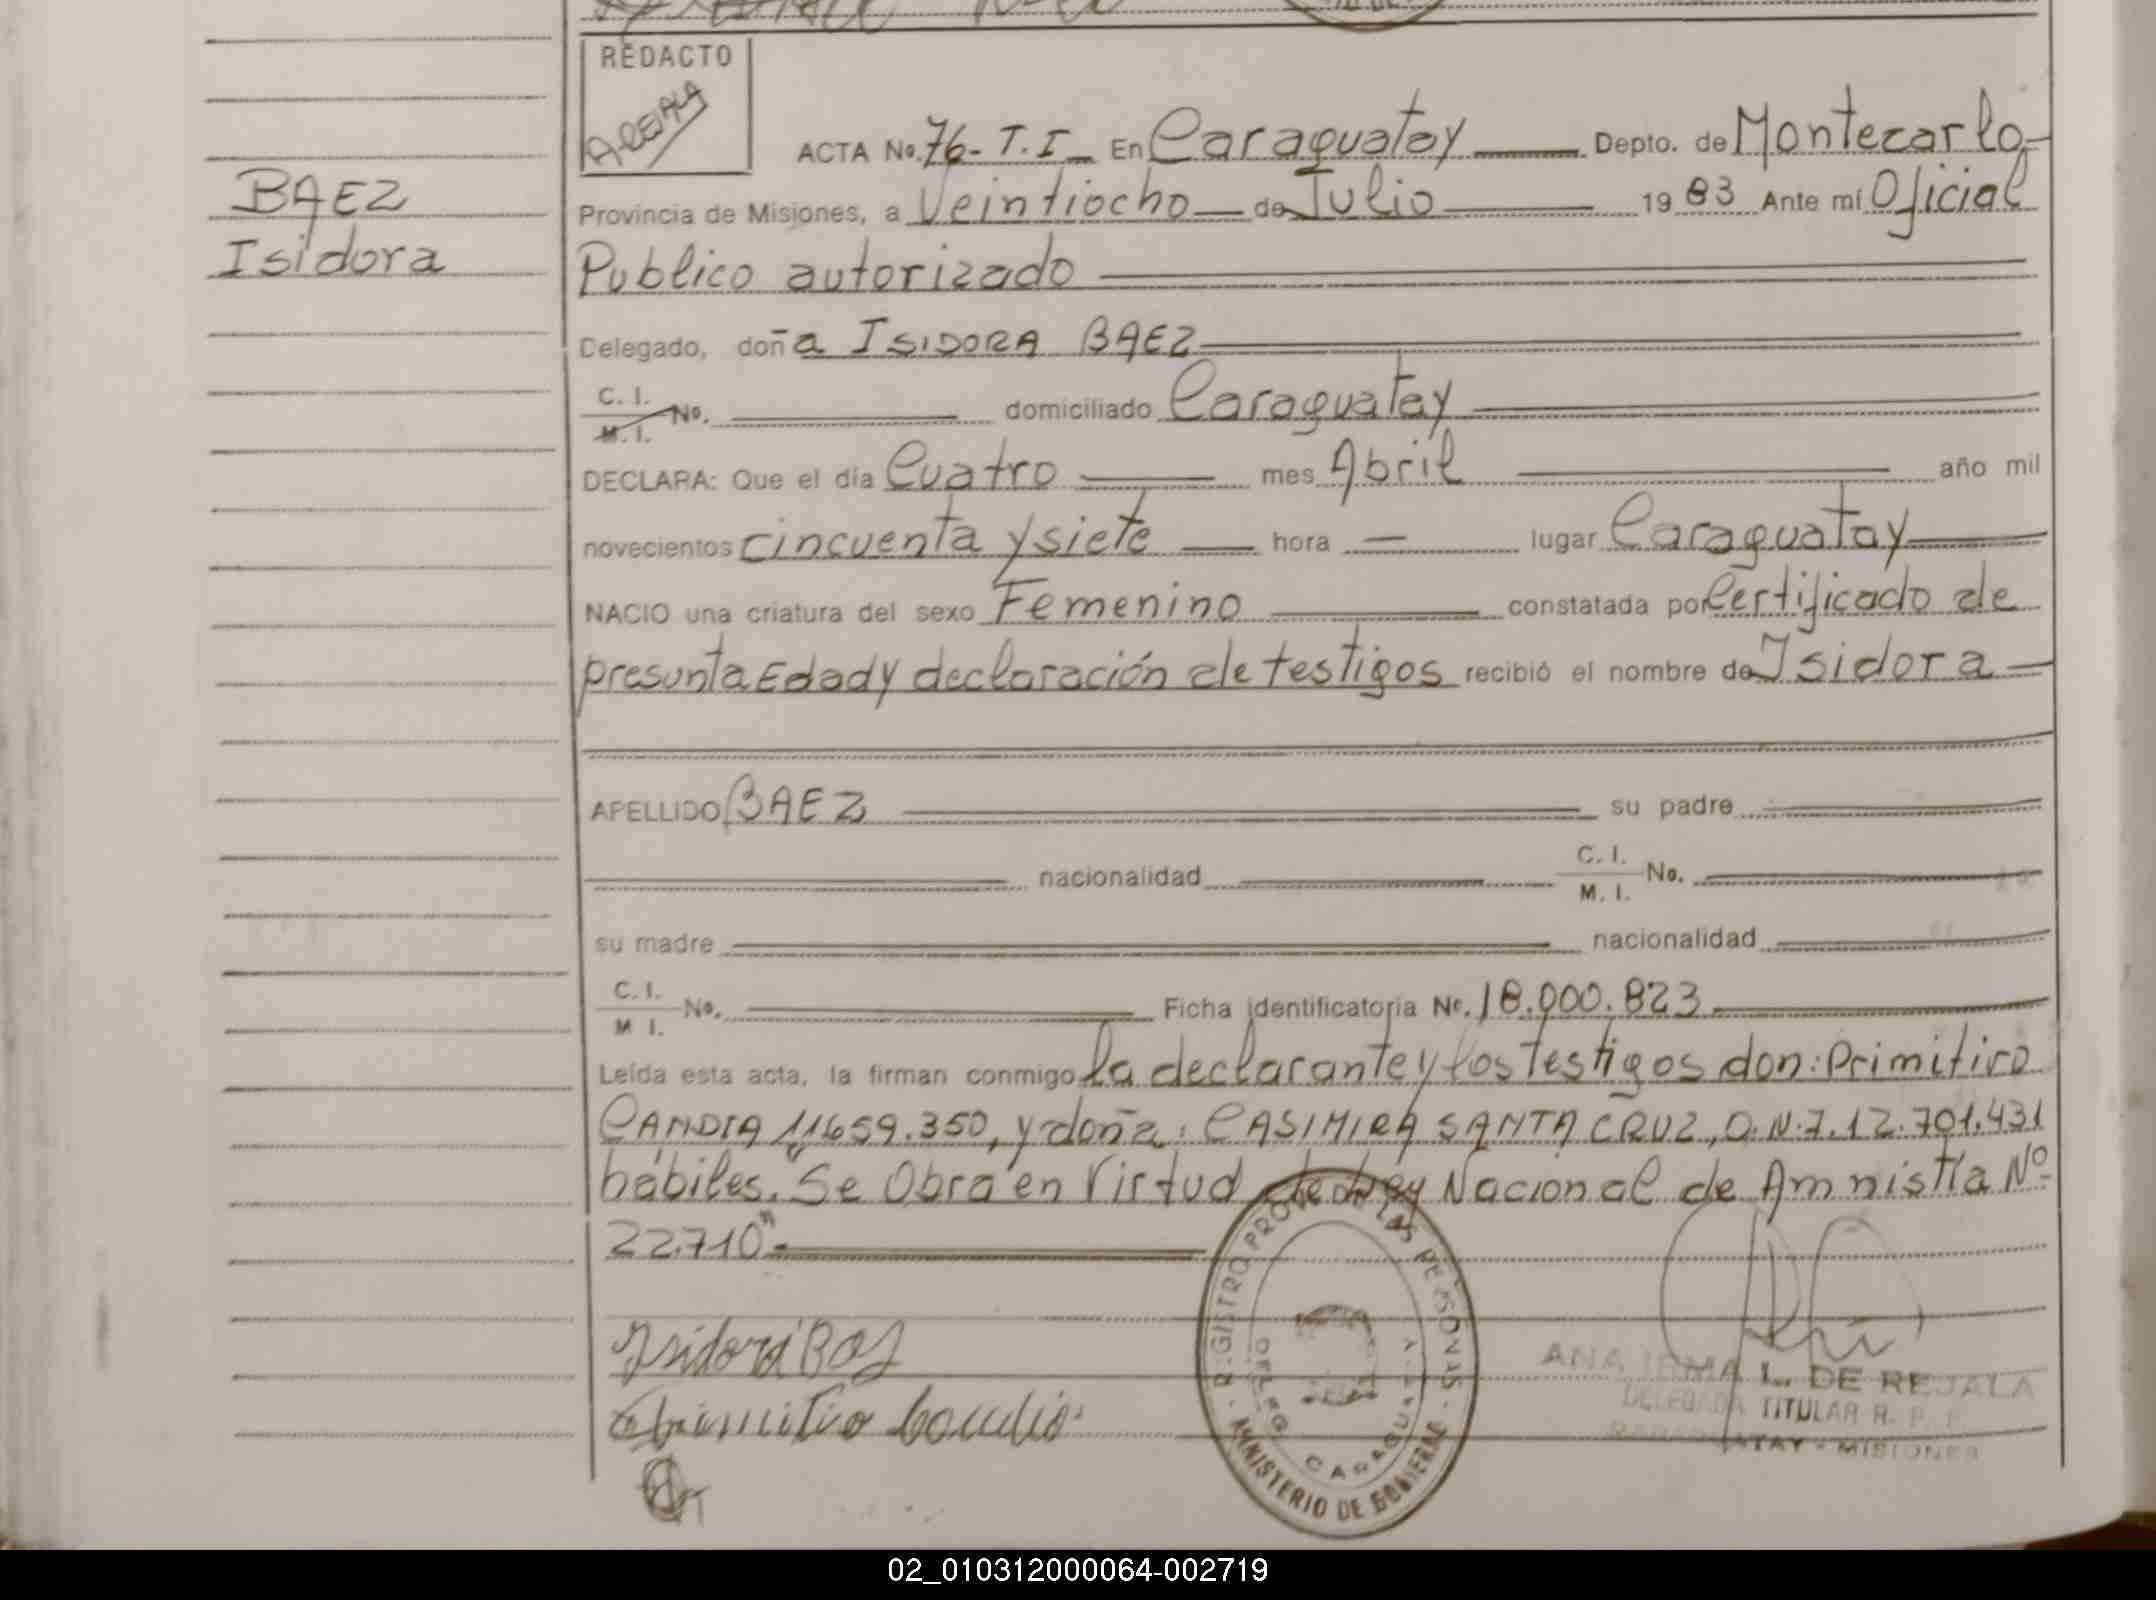 REDACTO
BAEZ
Isidora
ACTA No. 76- T. I En Caraguatay Depto. de Montecarlo
Provincia de Misiones, a Veintiocho de Julio 19 83 Ante mí Oficial
Publico autorizado
Delegado, doña ISIDORA BAEZ
C. I.
M. I. No. domiciliado Caraguatay
DECLARA: Que el día Cuatro mes Abril año mil
novecientos cincuenta y siete hora — lugar Caraguatay
NACIO una criatura del sexo Femenino constatada por Certificado de
presunta Edad y declaración de testigos recibió el nombre de Isidora
APELLIDO BAEZ su padre
nacionalidad C. I. No.
M. I.
su madre nacionalidad
C. I. No. Ficha identificatoria Nr. 18.000.823
M I.
Leída esta acta, la firman conmigo la declarante y los testigos don: Primitivo
CANDIA 11659.350, y doña: CASIMIRA SANTA CRUZ, D.N.I. 12.701.431
hábiles. Se Obra en Virtud de Ley Nacional de Amnistía Nº
22.710"-
REGISTRO PROV. DE LAS PERSONAS
DELEG. CARAGUATAY
MINISTERIO DE GOBIERNO
ANA IRMA L. DE REJALA
DELEGADA TITULAR R. P. P.
CARAGUATAY - MISIONES
02_010312000064-002719